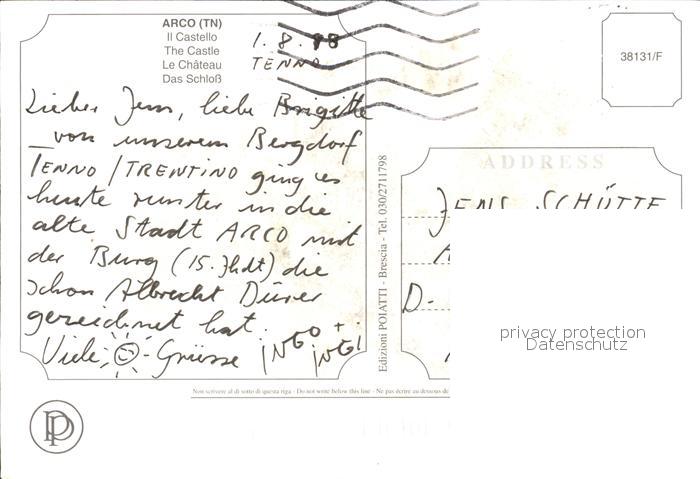 ARCO (TN)
Il Castello
The Castle
Le Château
Das Schloß
1.8.98
TENNO
Lieber Jens, liebe Brigitte
von unserem Bergdorf
TENNO / TRENTINO ging es
heute runter in die
alte Stadt ARCO mit
der Burg (15. Jhdt) die
schon Albrecht Dürer
gezeichnet hat.
Viele -Grüsse INGO +
INGI
Edizioni POIATTI - Brescia - Tel. 030/2711798
38131/F
ADDRESS
JENS SCHÜTTE
D-
privacy protection
Datenschutz
Non scrivere al di sotto di questa riga - Do not write below this line - Ne pas écrire au dessous de